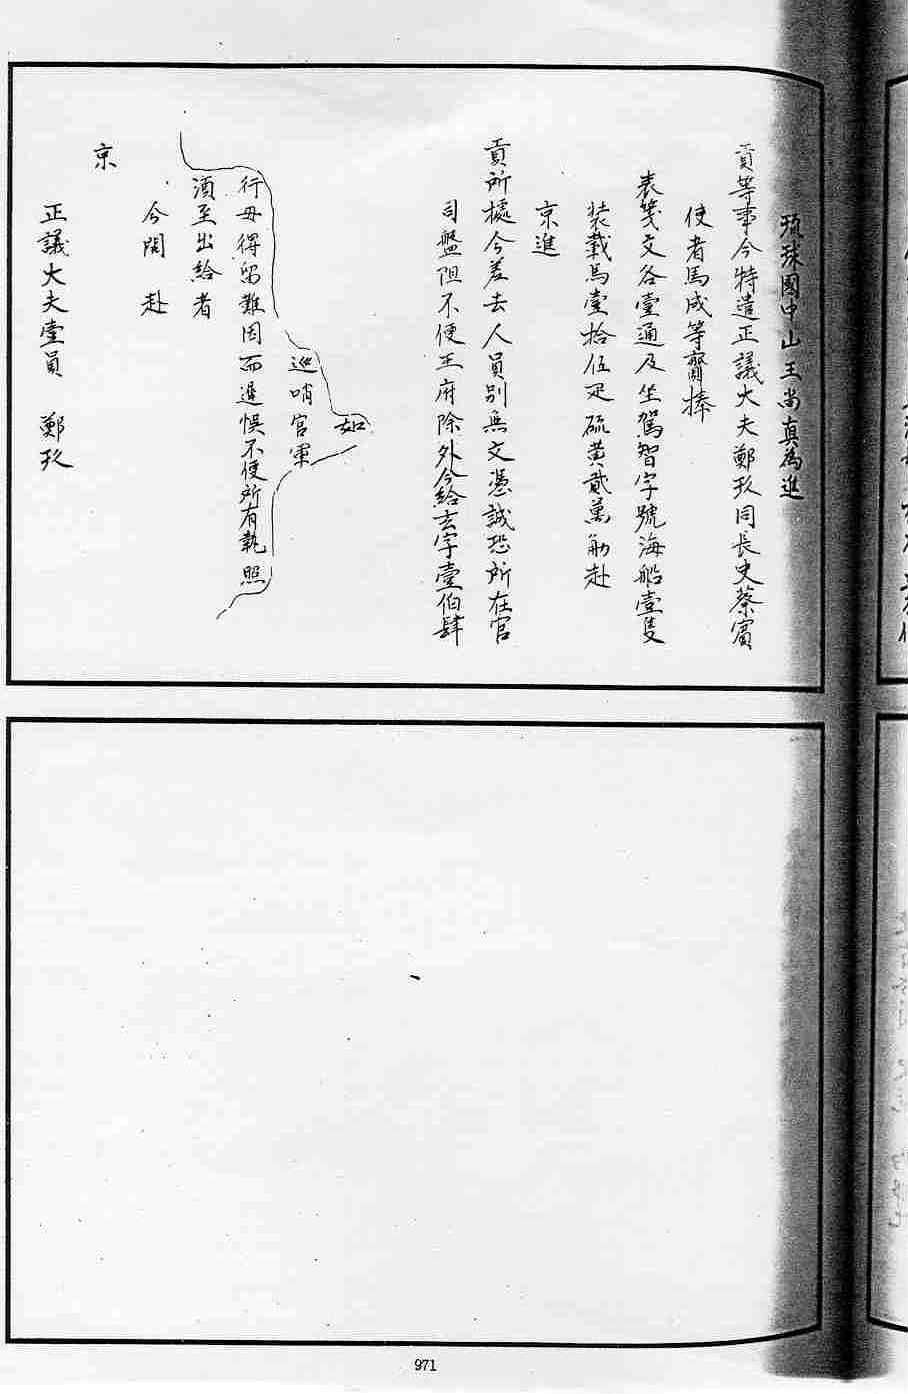 琉球國中山王尚真為進
貢等事今特遣正議大夫鄭玖同長史蔡賓
使者馬成等齎捧
表箋文各壹通及坐駕智字號海船壹隻
裝載馬壹拾伍疋硫黄貳萬觔赴
京進
貢所據今差去人員别無文憑誠恐所在官
司盤阻不便王府除外今給玄字壹伯肆
如
巡哨官軍
行毋得留難因而遲悞不便所有執照
須至出給者
今開 赴
京
正議大夫壹員 鄭玖
971